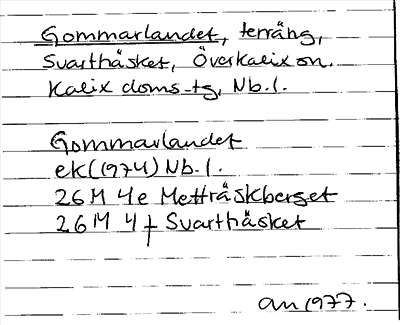 Gommarlandet, terräng,
Svarthäsket, Överkalix sn.
Kalix doms-tg, Nb. l.
Gommarlandet
ek(1974) Nb. l.
26 M 4e Metträskberget
26 M 4f Svarthäsket
an 1977.